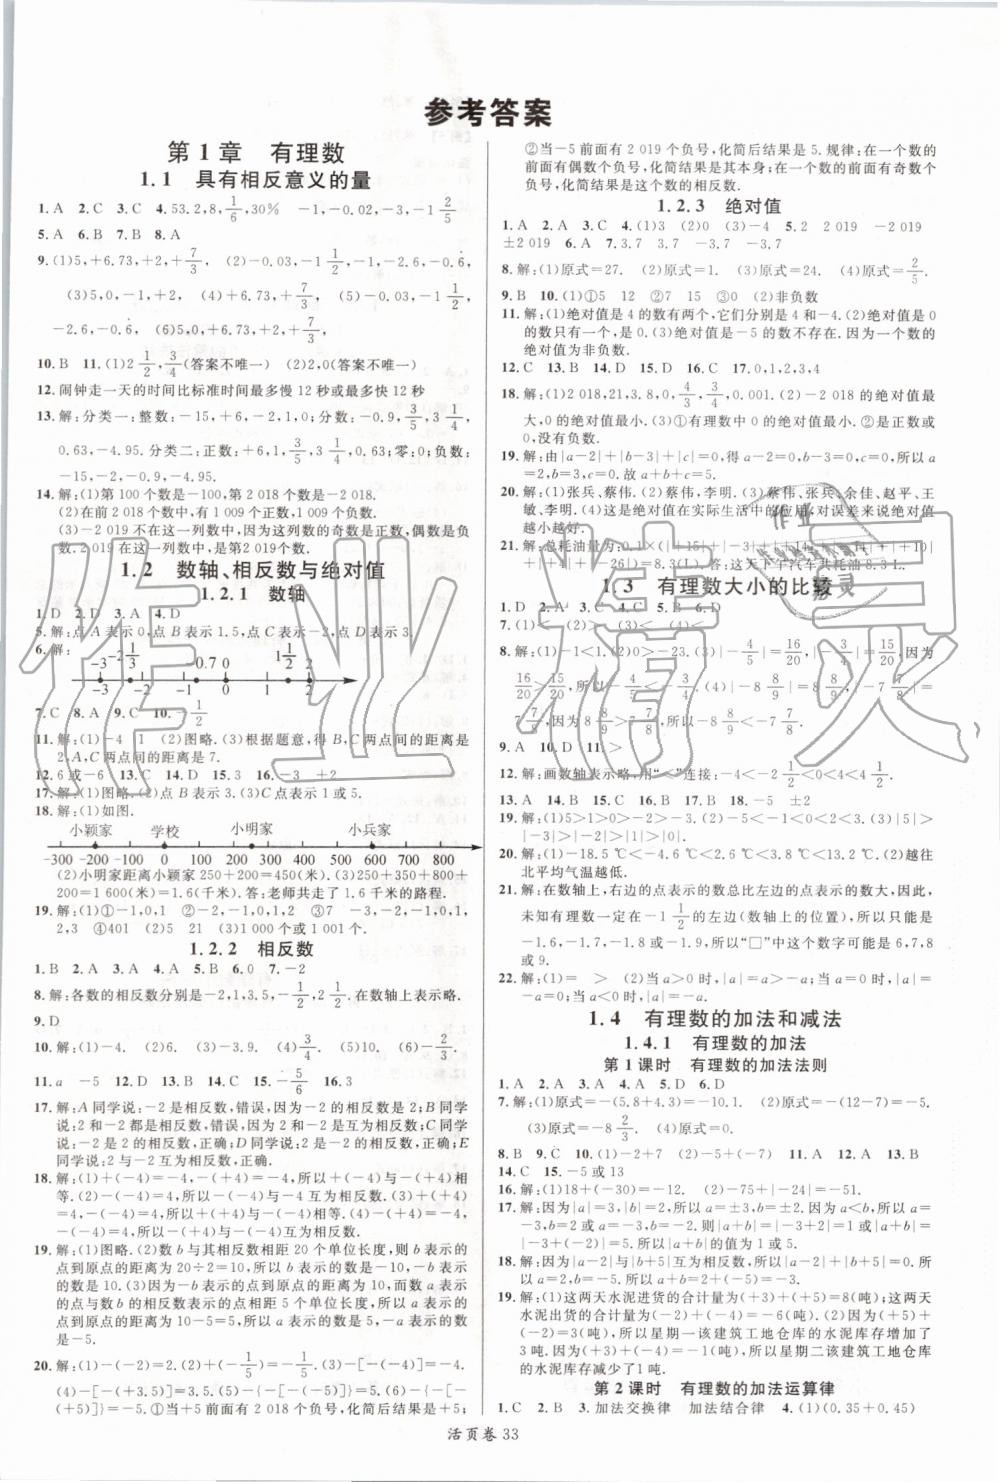 参考答案
第1章 有理数
1.1 具有相反意义的量
1. A 2. C 3. C 4. 53.2,8,1/6,30% －1,－0.02,－3,－1 2/5
5. A 6. B 7. B 8. A
9. (1)5,＋6.73,＋2,＋7/3 (2)－0.03,－1 1/2,－1,－2.6,－0.6,
(3)5,0,－1,＋2 (4)＋6.73,＋7/3 (5)－0.03,－1 1/2,
－2.6,－0.6 (6)5,0,＋6.73,＋2,＋7/3
10. B 11. (1)2 1/2,3/4(答案不唯一) (2)2,0(答案不唯一)
12. 闹钟走一天的时间比标准时间最多慢12秒或最多快12秒
13. 解:分类一:整数:－15,＋6,－2,1,0;分数:－0.9,3/5,3 1/4,
0.63,－4.95. 分类二:正数:＋6,1,3/5,3 1/4,0.63;零:0;负数:
－15,－2,－0.9,－4.95.
14. 解:(1)第100个数是－100,第2 018个数是－2 018.
(2)在前2 018个数中,有1 009个正数,1 009个负数.
(3)－2 019不在这一列数中,因为这列数的奇数是正数,偶数是负
数. 2 019在这一列数中,是第2 019个数.
1.2 数轴、相反数与绝对值
1.2.1 数轴
1. D 2. D 3. A 4. D
5. 解:点A表示0,点B表示1.5,点C表示－2,点D表示3.
6. 解:
－3 －2 1/2 －0.7 0 1 1/2 2
－3 －2 －1 0 1 2
7. C 8. A 9. C 10. －1/2
11. 解:(1)－4 1 (2)图略. (3)根据题意,得B,C两点间的距离是
2,A,C两点间的距离是7.
12. 6或－6 13. C 14. D 15. 3 16. －3 ＋2
17. 解:(1)图略. (2)点B表示3. (3)C点表示1或5.
18. 解:(1)如图.
小颖家 学校 小明家 小兵家
－300 －200 －100 0 100 200 300 400 500 600 700 800
(2)小明家距离小颖家250＋200＝450(米). (3)250＋350＋800＋
200＝1 600(米)＝1.6(千米). 答:老师共走了1.6千米的路程.
19. 解:(1)①－1,0,1 ②－2,－1,0,1,2 ③7 －3,－2,－1,0,1,
2,3 ④401 (2)5 21 (3)1 000个或1 001个.
1.2.2 相反数
1. B 2. A 3. A 4. A 5. B 6. 0 7. －2
8. 解:各数的相反数分别是－2,1,3.5,－1/2,2 1/2. 在数轴上表示略.
9. D
10. 解:(1)－4. (2)6. (3)－3.9. (4)－3/4. (5)10. (6)－2/3.
11. a －5 12. D 13. B 14. C 15. －5/6 16. 3
17. 解:A同学说:－2是相反数,错误,因为－2的相反数是2;B同学
说:2和－2都是相反数,错误,因为2和－2是互为相反数;C同学
说:－2是2的相反数,正确;D同学说:－2是2的相反数,正确;E
同学说:2与－2互为相反数,正确.
18. 解:(1)＋(－4)＝－4,－(＋4)＝－4,所以＋(－4)与－(＋4)相
等. (2)＋(－4)＝－4,所以＋(－4)与－4互为相反数. (3)＋(＋4)
＝4,－(－4)＝4,所以＋(＋4)与－(－4)相等. (4)＋(－4)＝－4,
－(－4)＝4,所以＋(－4)与－(－4)互为相反数.
19. 解:(1)图略. (2)数b与其相反数相距20个单位长度,则b表示
的点到原点的距离为20÷2＝10,所以b表示的数是－10,－b表
示的数是10. (3)因为－b表示的点到原点的距离为10,而数a表示
的点与数b的相反数表示的点相距5个单位长度,所以a表示的
点到原点的距离为10－5＝5,所以a表示的数是5,－a表示的数
是－5.
20. 解:(1)－(－2)＝2. (2)＋(－1/5)＝－1/5. (3)－[－(－4)]＝－4.
(4)－[－(＋3.5)]＝3.5. (5)－{－[－(－5)]}＝5. (6)－{－[－
(＋5)]}＝5. ①当＋5前面有2 018个负号,化简后结果是5.
②当－5前面有2 019个负号,化简后结果是5. 规律:在一个数的
前面有偶数个负号,化简后结果是其本身;在一个数的前面有奇数个
负号,化简后结果是这个数的相反数.
1.2.3 绝对值
1. A 2. A 3. C 4. (1)3 (2)0 (3)－4 5. 2 2 019 －2 019
±2 019 6. A 7. 3.7 3.7 －3.7 －3.7
8. 解:(1)原式＝27. (2)原式＝1. (3)原式＝24. (4)原式＝2/5.
9. B 10. (1)①5 12 ②7 15 ③0 (2)非负数
11. 解:(1)绝对值是4的数有两个,它们分别是4和－4. (2)绝对值是0
的数只有一个,是0. (3)绝对值是－5的数不存在. 因为一个数的
绝对值为非负数.
12. C 13. B 14. D 15. D 16. C 17. 0,1,2,3,4
18. 解:(1)2 018,21,3,8,0,4/3,3/4,0.001. (2)－2 018的绝对值最
大,0的绝对值最小. (3)①有理数中0的绝对值最小. ②是正数或
0,没有负数.
19. 解:由|a－2|＋|b－3|＋|c|＝0,得a－2＝0,b－3＝0,所以a
＝2,b＝3,c＝0. 故a＋b＋c＝5.
20. 解:(1)张兵、蔡伟. (2)蔡伟,李明. (3)蔡伟、张兵、余佳、赵平、王
敏、李明. (4)这是绝对值在实际生活中的应用,对误差来说绝对值
越小越好.
1.3 有理数大小的比较
1. D 2. A 3. D 4. C 5. D 6. B
8. 解:(1)－1＜1. (2)0＞－23. (3)|－4/5|＝16/20,|－3/4|＝15/20,因为
16/20＞15/20,所以－4/5＜－3/4. (4)|－8 8/9|＝8 8/9,|－7 7/8|＝
7 7/8,因为8 8/9＞7 7/8,所以－8 8/9＜－7 7/8.
9. A 10. D 11. ＞
12. 解:画数轴表示略,用“＜”连接:－4＜－2 1/2＜0＜4＜4 1/2.
13. A 14. B 15. A 16. B 17. B 18. －5 ±2
19. 解:(1)5＞1＞0＞－2＞－3. (2)－5＜－1＜0＜2＜3. (3)|5|＞
|－3|＞|－2|＞|1|＞|0|.
20. 解:(1)－18.5 ℃＜－4.6 ℃＜3.8 ℃＜13.2 ℃. (2)越往
北平均气温越低.
21. 解:在数轴上,右边的点表示的数总比左边的点表示的数大,因此,
未知有理数一定在－1 1/2的左边(数轴上的位置),所以只能是
－1.6,－1.7,－1.8或－1.9,所以“□”中这个数字可能是6,7,8
或9.
22. 解:(1)＝ ＞ (2)当a＞0时,|a|＝a＞－a;当a＝0时,|a|＝
－a＝0;当a＜0时,|a|＝－a＞a.
1.4 有理数的加法和减法
1.4.1 有理数的加法
第1课时 有理数的加法法则
1. A 2. A 3. C 4. D 5. D 6. D
7. 解:(1)原式＝－(5.8＋4.3)＝－10.1. (2)原式＝－(12－7)＝－5.
(3)原式＝－8 2/3. (4)原式＝0.
8. B 9. C 10. (1)－2＋7 (2)－5＋(－7) 11. A 12. A 13. B
14. C 15. －5或13
16. 解:(1)18＋(－30)＝－12. (2)－75＋|－24|＝－51.
17. 解:因为|a|＝3,|b|＝2,所以a＝±3,b＝±2. 因为a＜b,所以a＝
－3,b＝2或a＝－3,b＝－2. 则|a＋b|＝|－3＋2|＝1或|a＋b|＝
|－3＋(－2)|＝5. 所以|a＋b|的值为1或5.
18. 解:因为|a－2|与|b＋5|互为相反数,所以|a－2|＋|b＋5|＝0.
所以a＝2,b＝－5. 所以a＋b＝2＋(－5)＝－3.
19. 解:(1)这两天水泥进货的合计量为(＋3)＋(＋5)＝8(吨),这两天
水泥出货的合计量为(－2)＋(－4)＝－6(吨). (2)因为(＋5)＋
(－2)＝3(吨),所以星期一该建筑工地仓库的水泥库存增加了
3吨. 因为(＋3)＋(－4)＝－1(吨),所以星期二该建筑工地仓库
的水泥库存减少了1吨.
第2课时 有理数的加法运算律
1. C 2. B 3. 加法交换律 加法结合律 4. (1)(0.35＋0.45)
活页卷 33